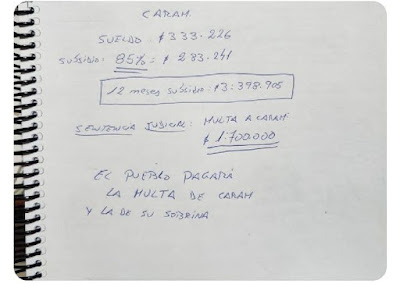 CARAM
SUELDO: $333.226
SUBSIDIO: 85% = $283.241
12 meses subsidio: $3:398.905
SENTENCIA JUDICIAL: MULTA A CARAM
$1:700.000
EL PUEBLO PAGARÁ
LA MULTA DE CARAM
Y LA DE SU SOBRINA